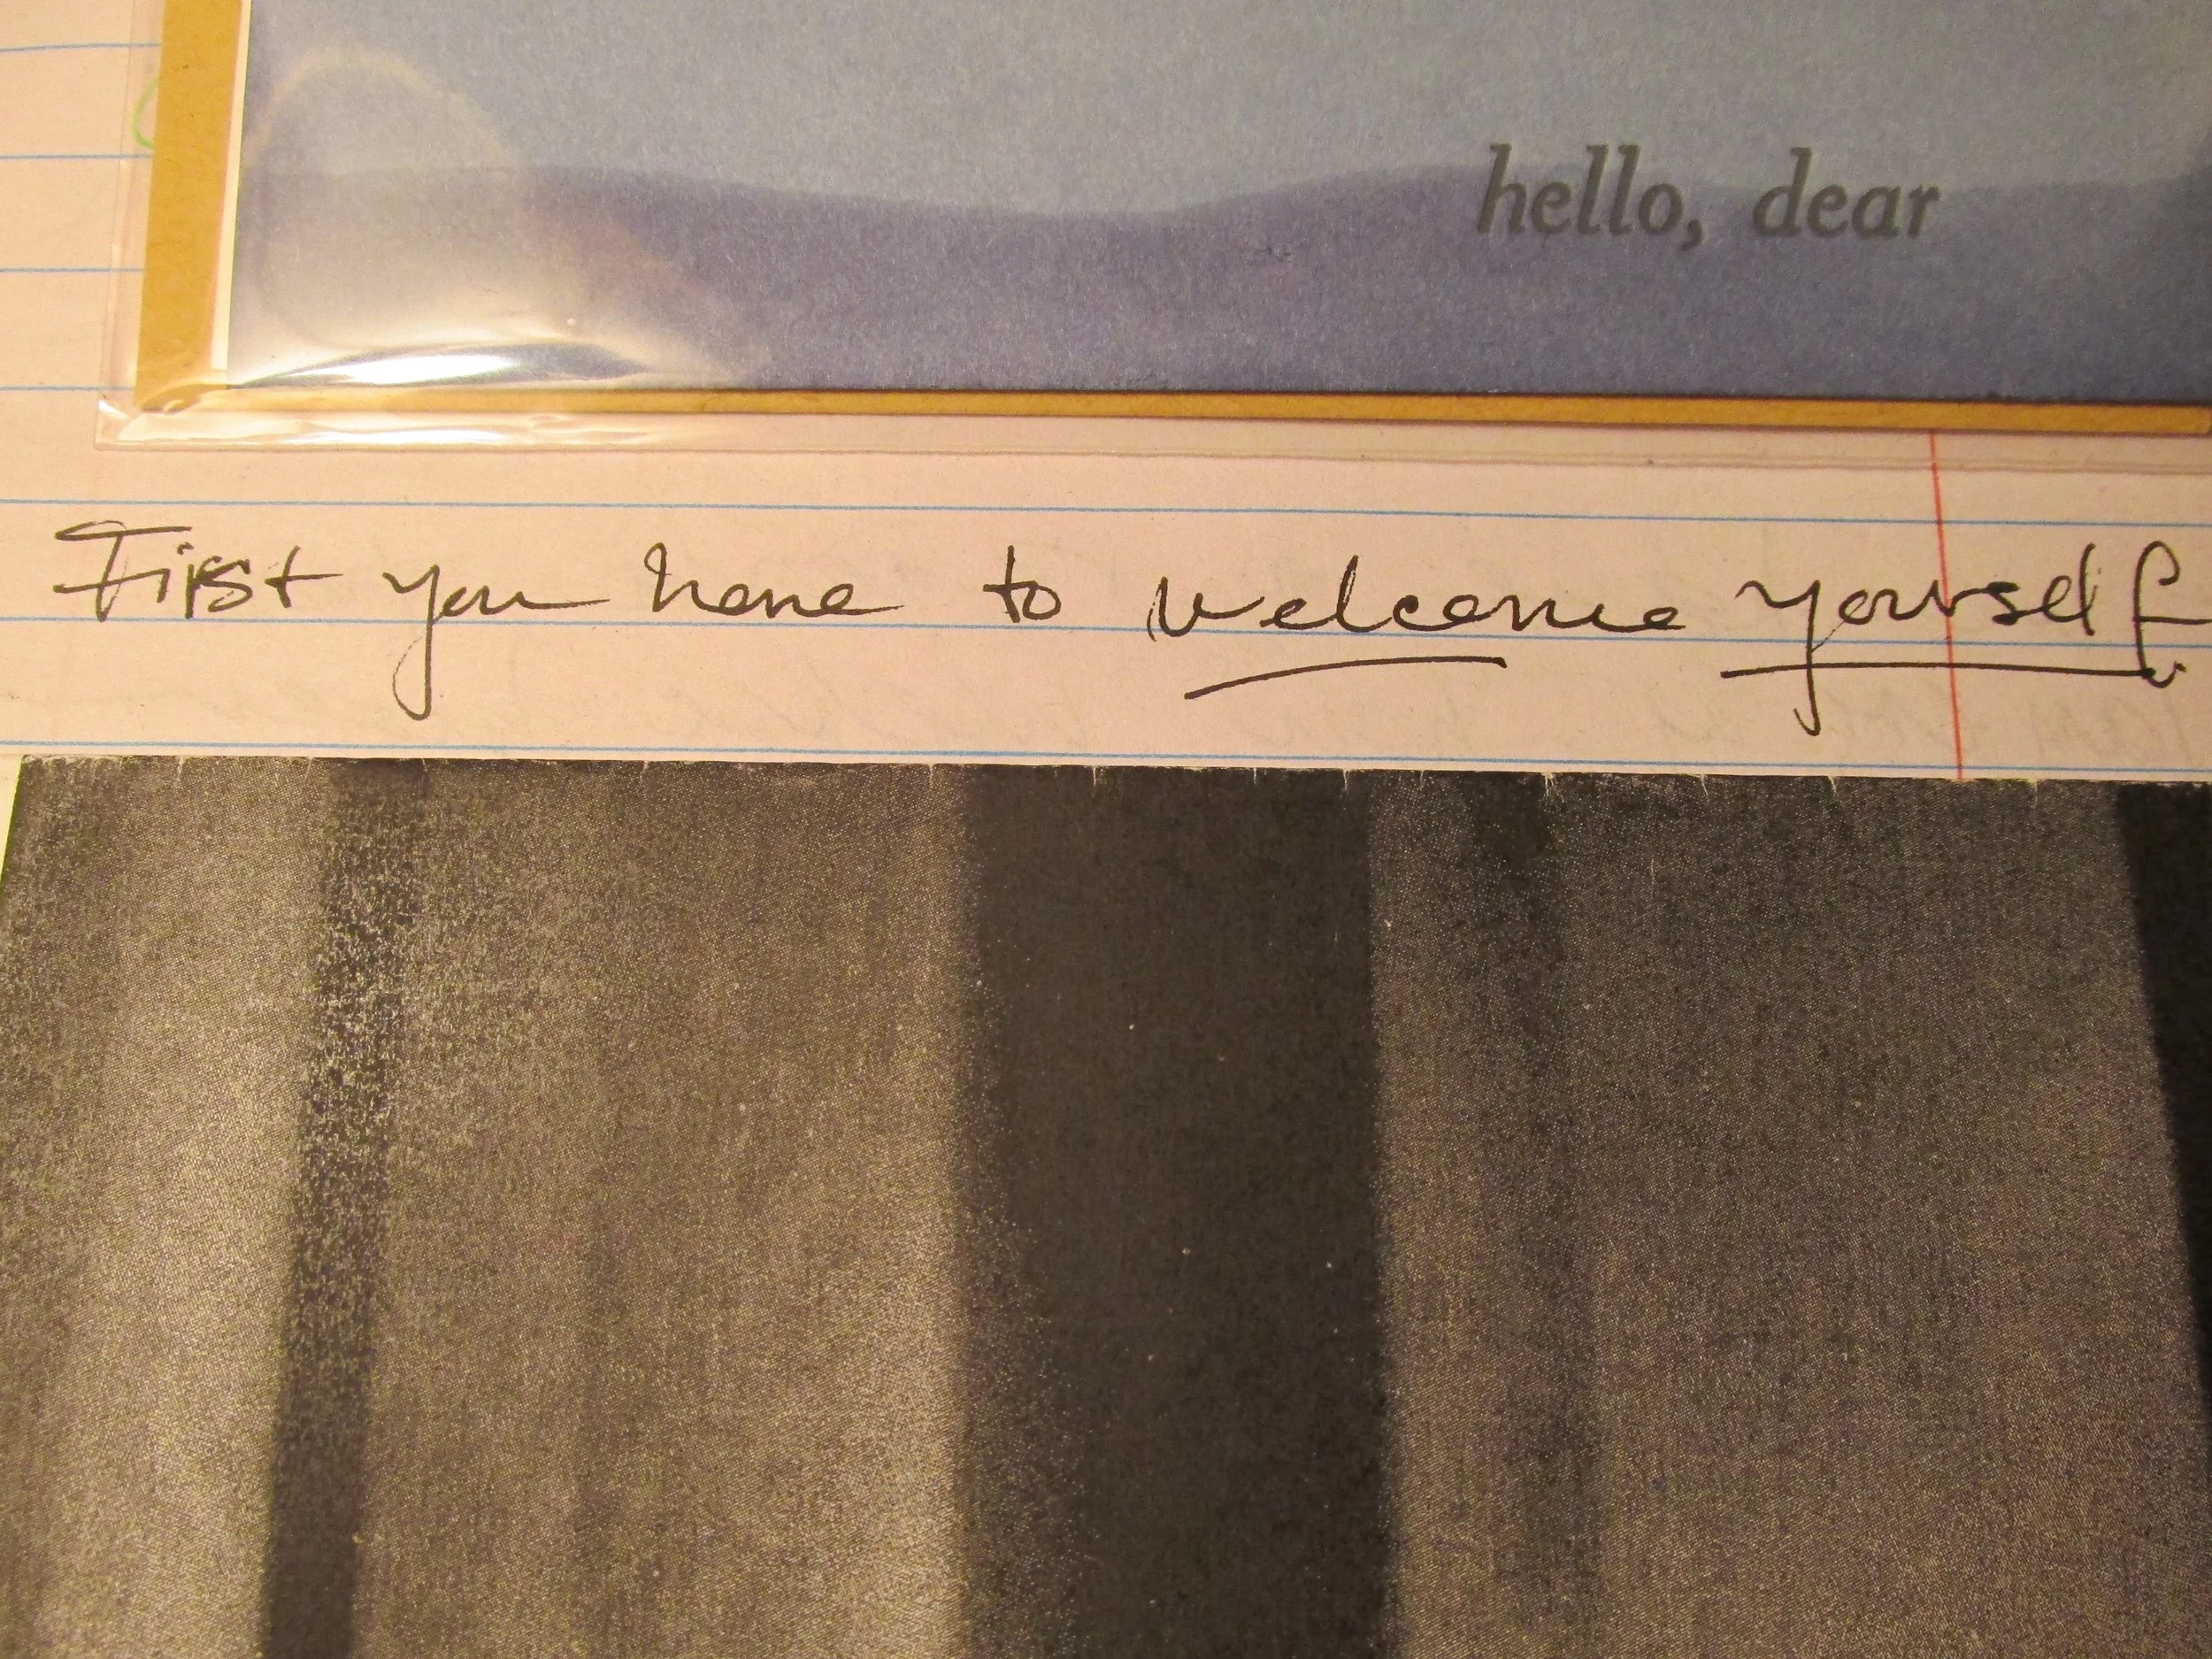 hello, dear
First you have to welcome yourself.